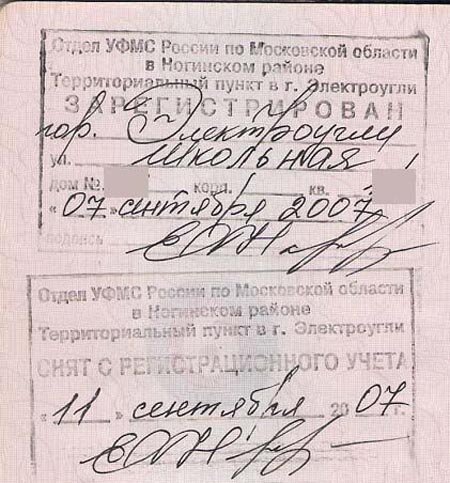 Отдел УФМС России по Московской области
в Ногинском районе
Территориальный пункт в г. Электроугли
ЗАРЕГИСТРИРОВАН
гор. Электроугли
ул. школьная
дом № корп. кв.
"07" сентября 2007
подпись
Отдел УФМС России по Московской области
в Ногинском районе
Территориальный пункт в г. Электроугли
СНЯТ С РЕГИСТРАЦИОННОГО УЧЕТА
"11" сентября 2007 г.